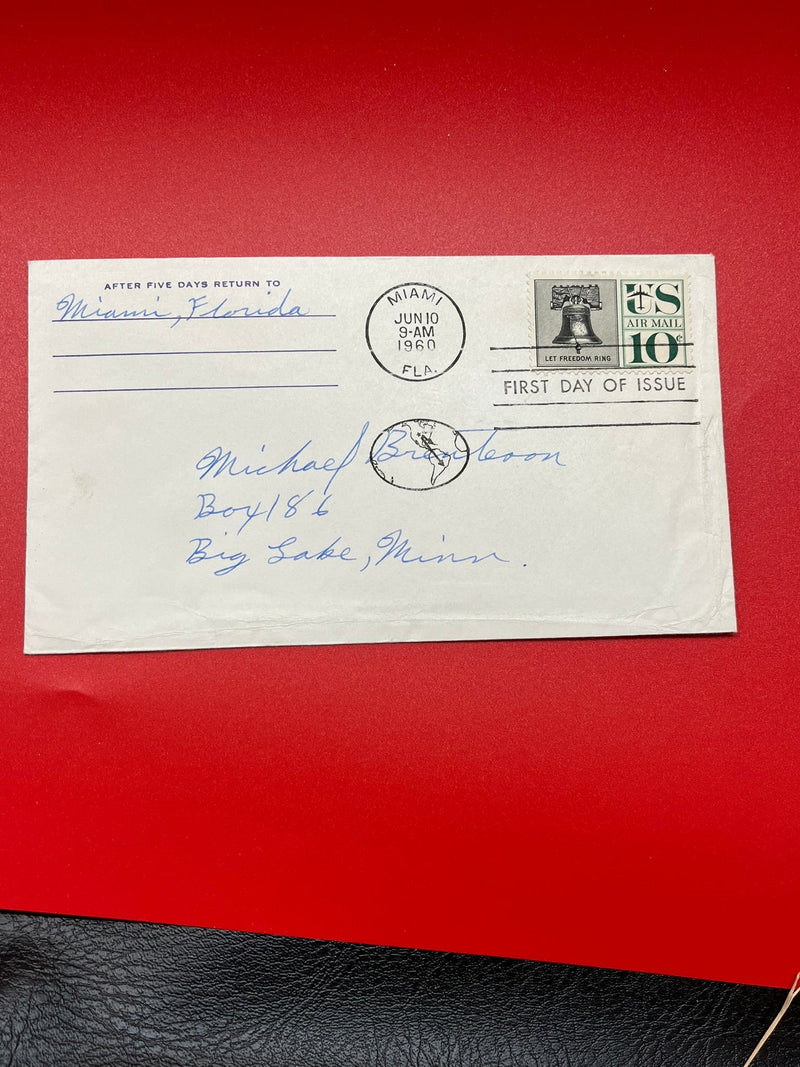 AFTER FIVE DAYS RETURN TO
Miami, Florida
MIAMI
JUN 10
9-AM
1960
FLA.
LET FREEDOM RING
US
AIR MAIL
10¢
FIRST DAY OF ISSUE
Michael
Box 186
Big Lake, Minn.